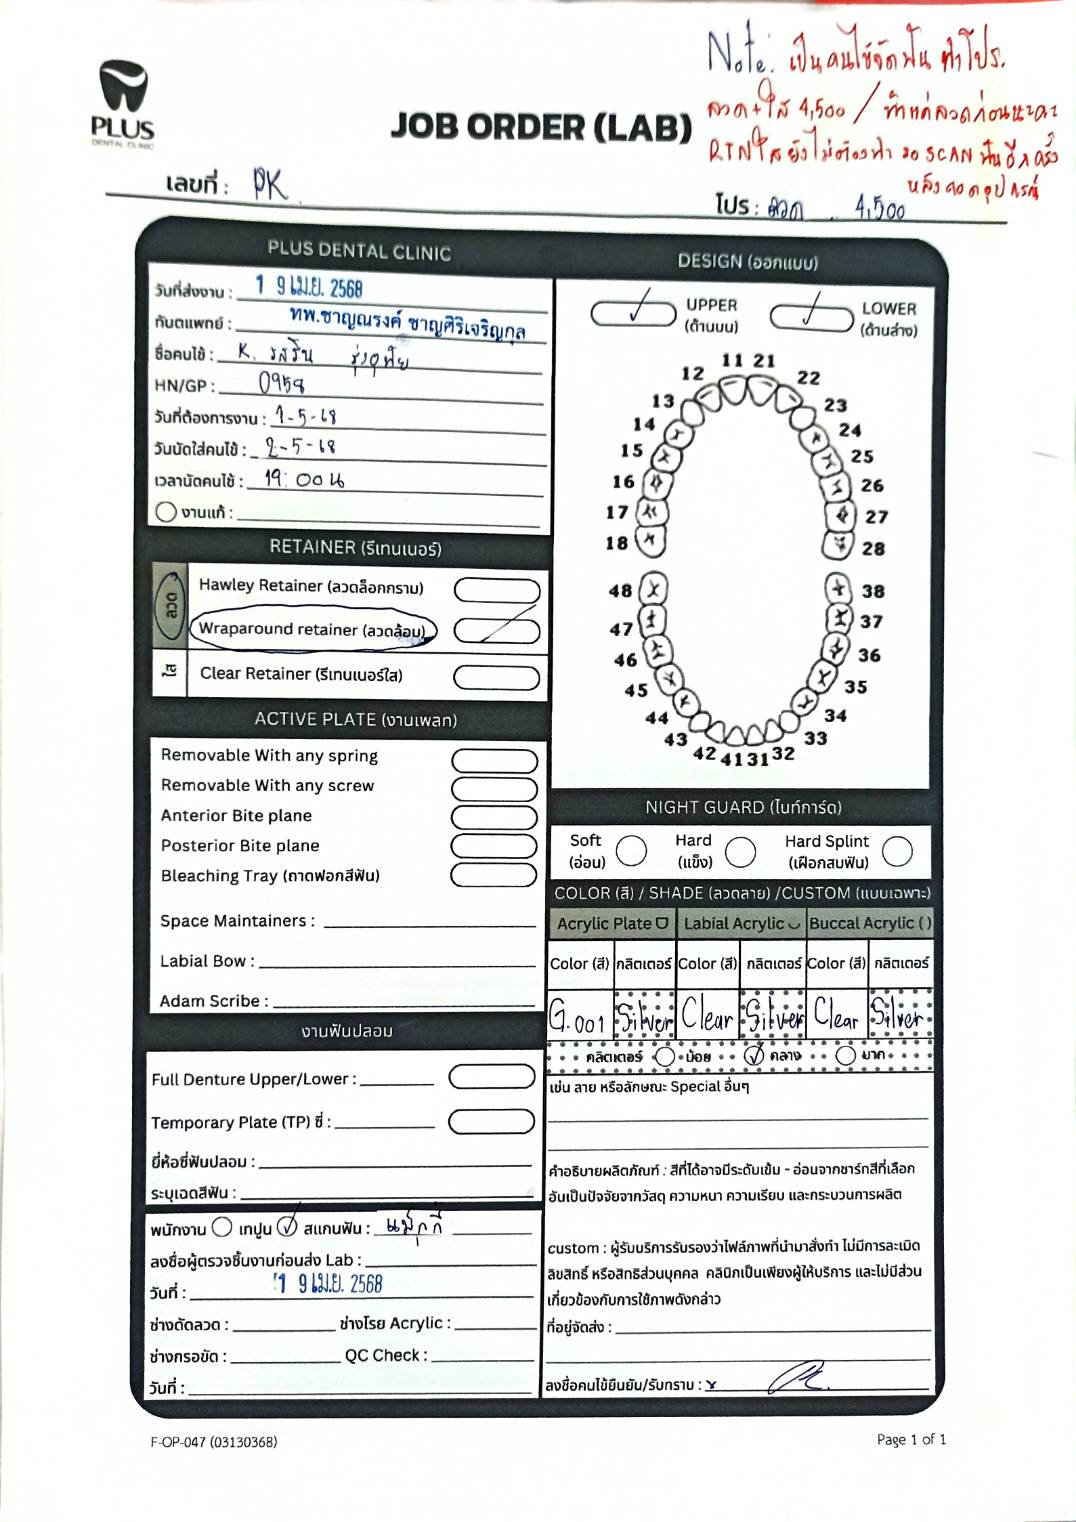 PLUS
DENTAL CLINIC
JOB ORDER (LAB)
Note: เป็นคนไข้จัดฟัน ทำโปร.
ลวด+ใส 4,500 / ทำแค่ลวดก่อนนะคะ
RTNใส ยังไม่ต้องทำ รอ SCAN ฟันอีกครั้ง
หลังถอดอุปกรณ์
เลขที่ : PK
โปร : ลวด 4,500
PLUS DENTAL CLINIC
วันที่ส่งงาน : 19 เม.ย. 2568
ทันตแพทย์ : ทพ.ชาญณรงค์ ชาญศิริเจริญกุล
ชื่อคนไข้ : K. รสริน รุ่งอุทัย
HN/GP : 0958
วันที่ต้องการงาน : 1-5-68
วันนัดใส่คนไข้ : 2-5-68
เวลานัดคนไข้ : 19:00 น
งานแก้ :
RETAINER (รีเทนเนอร์)
ลวด
Hawley Retainer (ลวดล็อกกราม)
Wraparound retainer (ลวดล้อม)
ใส
Clear Retainer (รีเทนเนอร์ใส)
ACTIVE PLATE (งานเพลท)
Removable With any spring
Removable With any screw
Anterior Bite plane
Posterior Bite plane
Bleaching Tray (ถาดฟอกสีฟัน)
Space Maintainers :
Labial Bow :
Adam Scribe :
งานฟันปลอม
Full Denture Upper/Lower :
Temporary Plate (TP) ซี่ :
ยี่ห้อซี่ฟันปลอม :
ระบุเฉดสีฟัน :
พนักงาน เทปูน สแกนฟัน : แม็กกี้
ลงชื่อผู้ตรวจชิ้นงานก่อนส่ง Lab :
วันที่ : 19 เม.ย. 2568
ช่างดัดลวด : ช่างโรย Acrylic :
ช่างกรอขัด : QC Check :
วันที่ :
DESIGN (ออกแบบ)
UPPER (ด้านบน)
LOWER (ด้านล่าง)
11 21
12 22
13 23
14 24
15 25
16 26
17 27
18 28
48 38
47 37
46 36
45 35
44 34
43 33
42 41 31 32
NIGHT GUARD (ไนท์การ์ด)
Soft (อ่อน)
Hard (แข็ง)
Hard Splint (เฝือกสบฟัน)
COLOR (สี) / SHADE (ลวดลาย) /CUSTOM (แบบเฉพาะ)
Acrylic Plate Labial Acrylic Buccal Acrylic ( )
Color (สี) กลิตเตอร์ Color (สี) กลิตเตอร์ Color (สี) กลิตเตอร์
G.001 Silver Clear Silver Clear Silver
คลิตเตอร์ น้อย กลาง มาก
เช่น ลาย หรือลักษณะ Special อื่นๆ
คำอธิบายผลิตภัณฑ์ : สีที่ได้อาจมีระดับเข้ม - อ่อนจากชาร์ทสีที่เลือก
อันเป็นปัจจัยจากวัสดุ ความหนา ความเรียบ และกระบวนการผลิต
custom : ผู้รับบริการรับรองว่าไฟล์ภาพที่นำมาสั่งทำ ไม่มีการละเมิด
ลิขสิทธิ์ หรือสิทธิส่วนบุคคล คลินิกเป็นเพียงผู้ให้บริการ และไม่มีส่วน
เกี่ยวข้องกับการใช้ภาพดังกล่าว
ที่อยู่จัดส่ง :
ลงชื่อคนไข้ยืนยัน/รับทราบ : x
F-OP-047 (03130368)
Page 1 of 1